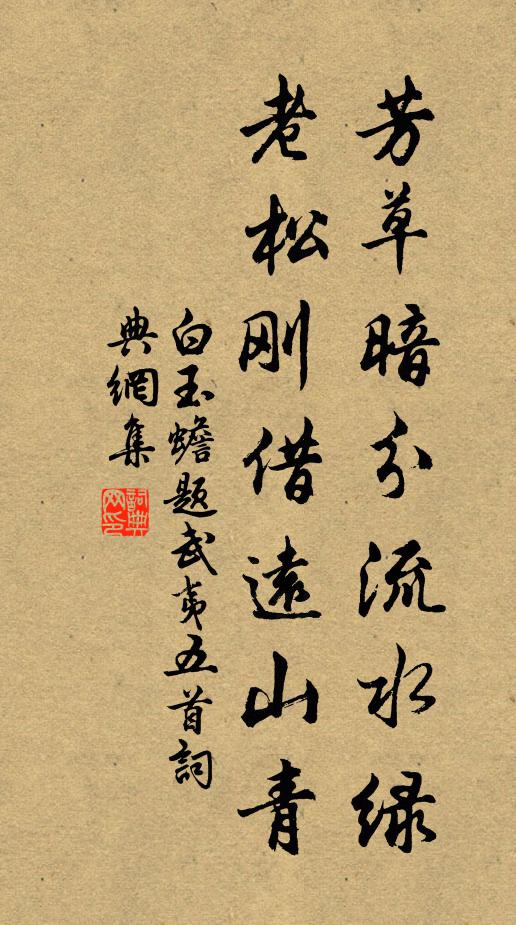 芳草暗分流水绿
老松刚借遠山青
白玉蟾题武夷五首詞
典網集
詞典网印